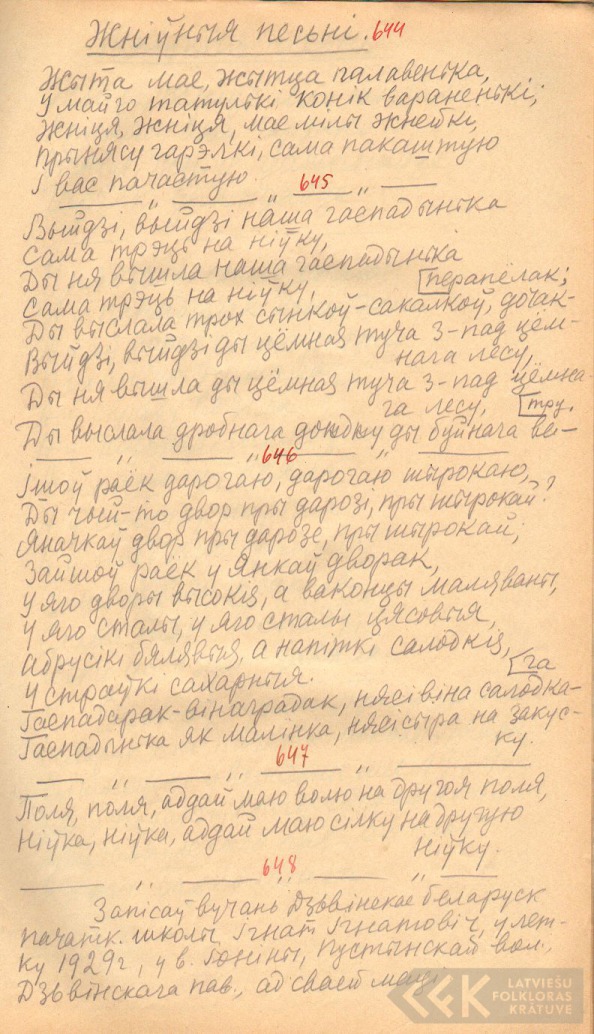 Жніўныя песьні. 644
Жыта мае, жытца палавенька,
У майго татулькі конік вараненькі;
Жніця, жніця, мае мілы жнейкі,
Прынясу гарэлкі, сама пакаштую
І вас пачастую.
645
Выйдзі, выйдзі наша гаспадынька
Сама трэць на ніўку,
Ды ня вышла наша гаспадынька
Сама трэць на ніўку, [перапёлак;
Ды выслала трох сынкоў-сакалкоў, дочак-
Выйдзі, выйдзі ды цёмная туча з-пад цём-
нага лесу,
Ды ня вышла ды цёмная туча з-пад цёмна-
га лесу, [тру.
Ды выслала дробнага дожджу ды буйнага ве-
646
Ішоў раёк дарогаю, дарогаю шырокаю,
Ды чый-то двор пры дарозі, пры шырокай?
Яначкаў двор пры дарозе, пры шырокай,
Зайшоў раёк у Янкаў дворак,
У яго дворы высокія, а ваконцы маляваны,
У яго сталы, у яго сталы цясовыя,
Абрусікі бялявыя, а напіткі салодкія,
У страўкі сахарныя. [га
Гаспадарак-вінаградак, нясі віна салодка-
Гаспадынька як малінка, нясі сыра на закус-
ку.
647
Поля, поля, аддай маю волю на другоя поля,
Ніўка, ніўка, аддай маю сілку на другую
ніўку.
648
Запісаў вучань Дзьвінскае беларуск
пачатк. школы Ігнат Ігнатовіч, у лет-
ку 1929г, у в. Боніны, Пустынскай вол.,
Дзьвінскага пав., ад сваей маці
LATVIEŠU
FOLKLORAS
KRĀTUVE